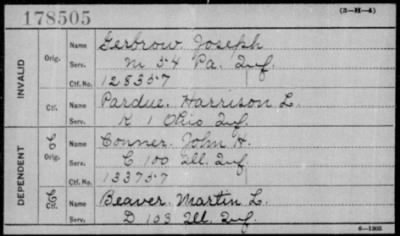 178505
(3—H—4)
INVALID
Orig.
Name Gerbrow Joseph
Serv. M 54 Pa. Inf.
Ctf. No. 128357
Ctf.
Name Pardue, Harrison L.
Serv. K 1 Ohio Inf.
DEPENDENT
Orig.
Name Conner, John H.
Serv. C 100 Ill. Inf.
Ctf. No. 133757
Ctf.
Name Beaver, Martin L.
Serv. D 103 Ill. Inf.